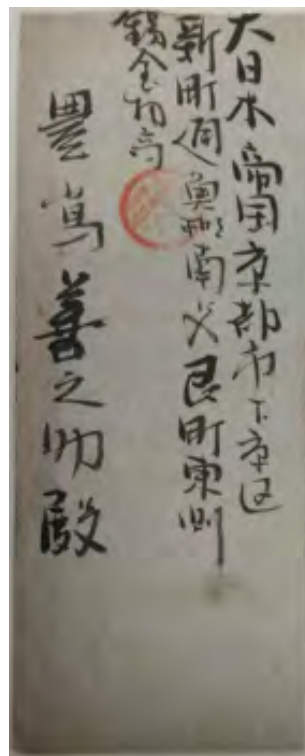 大日本帝国京都市下京区
新町通魚棚南入艮町東側
錫金物商
豊嶌善之助殿